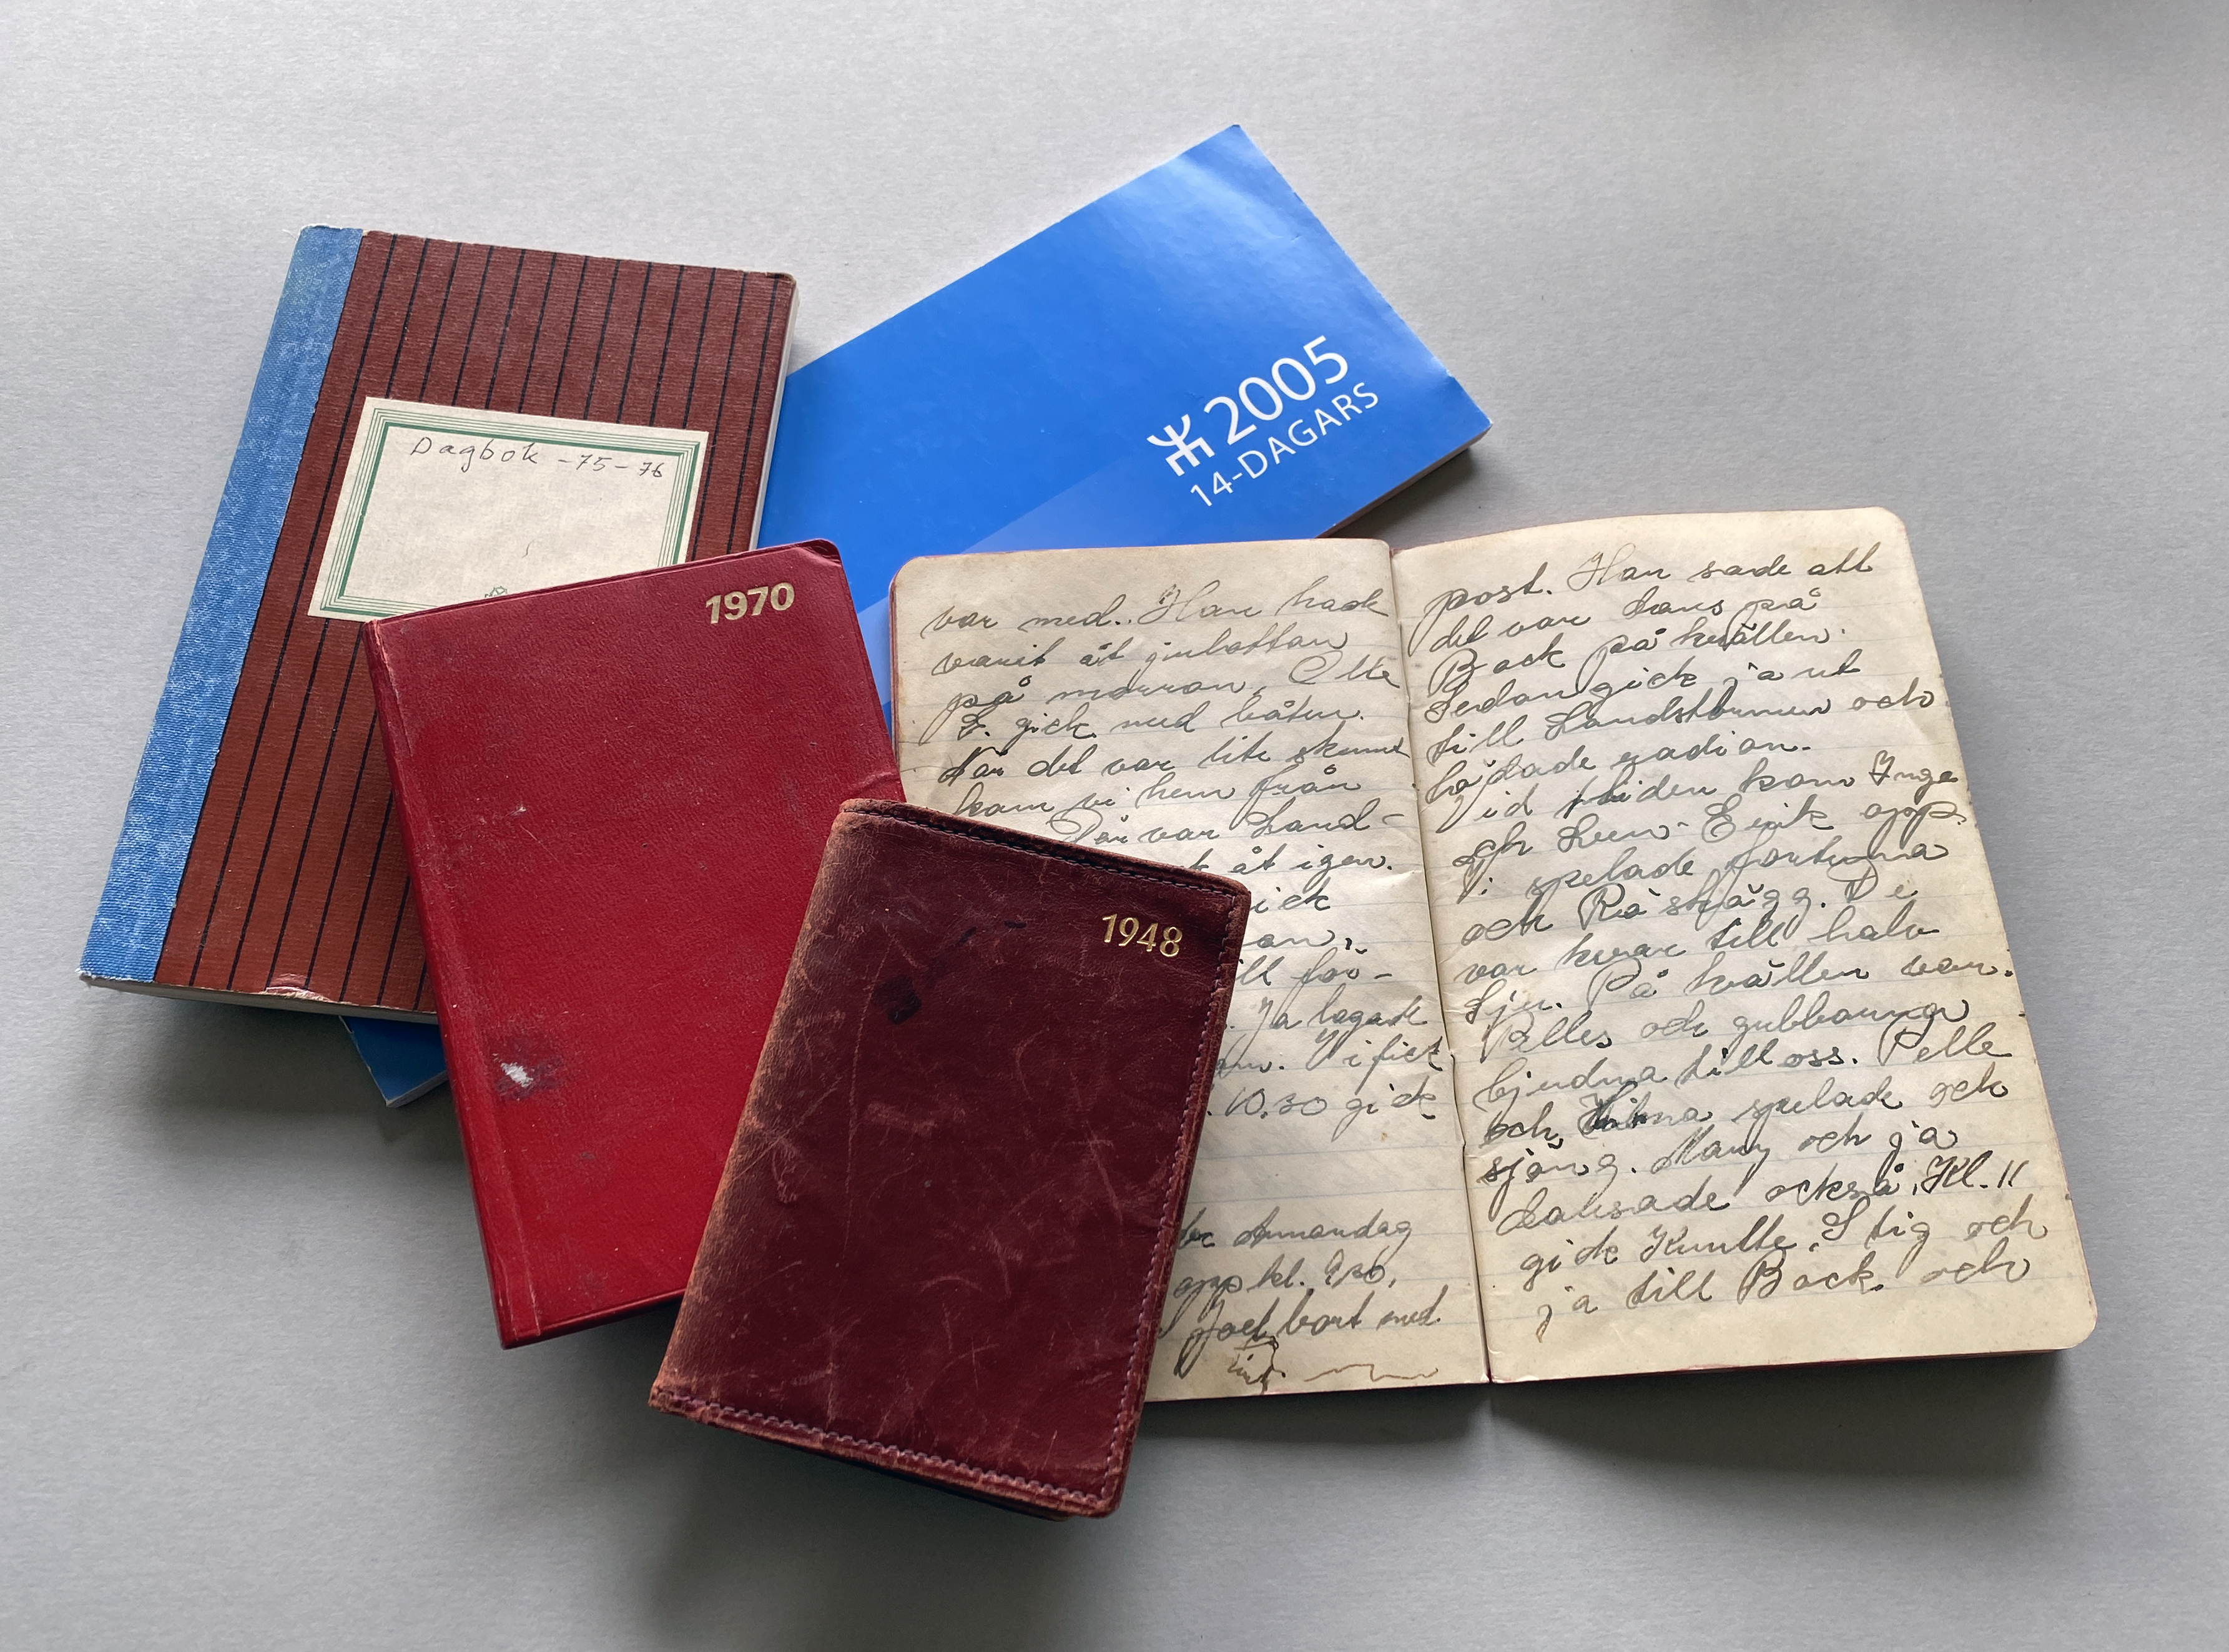 Dagbok -75-76
2005
14-DAGARS
1970
1948
var med. Han hade
varit åt julottan
på morron. Olle
E. gick med båten.
När det var lite skumt
kom vi hem från
Där var Land-
t åt igen.
ick
an,
ill för-
Ja lagade
Vi fick
10.30 gick
Annandag
opp kl. 9.30.
Joel bort med
post. Han sade att
det var dans på
Bock på kvällen.
Sedan gick ja ut
till Landströmmen och
hörde radion.
Vid tiden kom Inge
och Sven-Erik opp.
Vi spelade fortuna
och Råskägg. De
var kvar till halv
sju. På kvällen var
Pelles och gubbarna
bjudna till oss. Pelle
och Hilma spelade och
sjöng. Many och ja
dansade också. Kl. 11
gick Kulle, Stig och
ja till Bock och